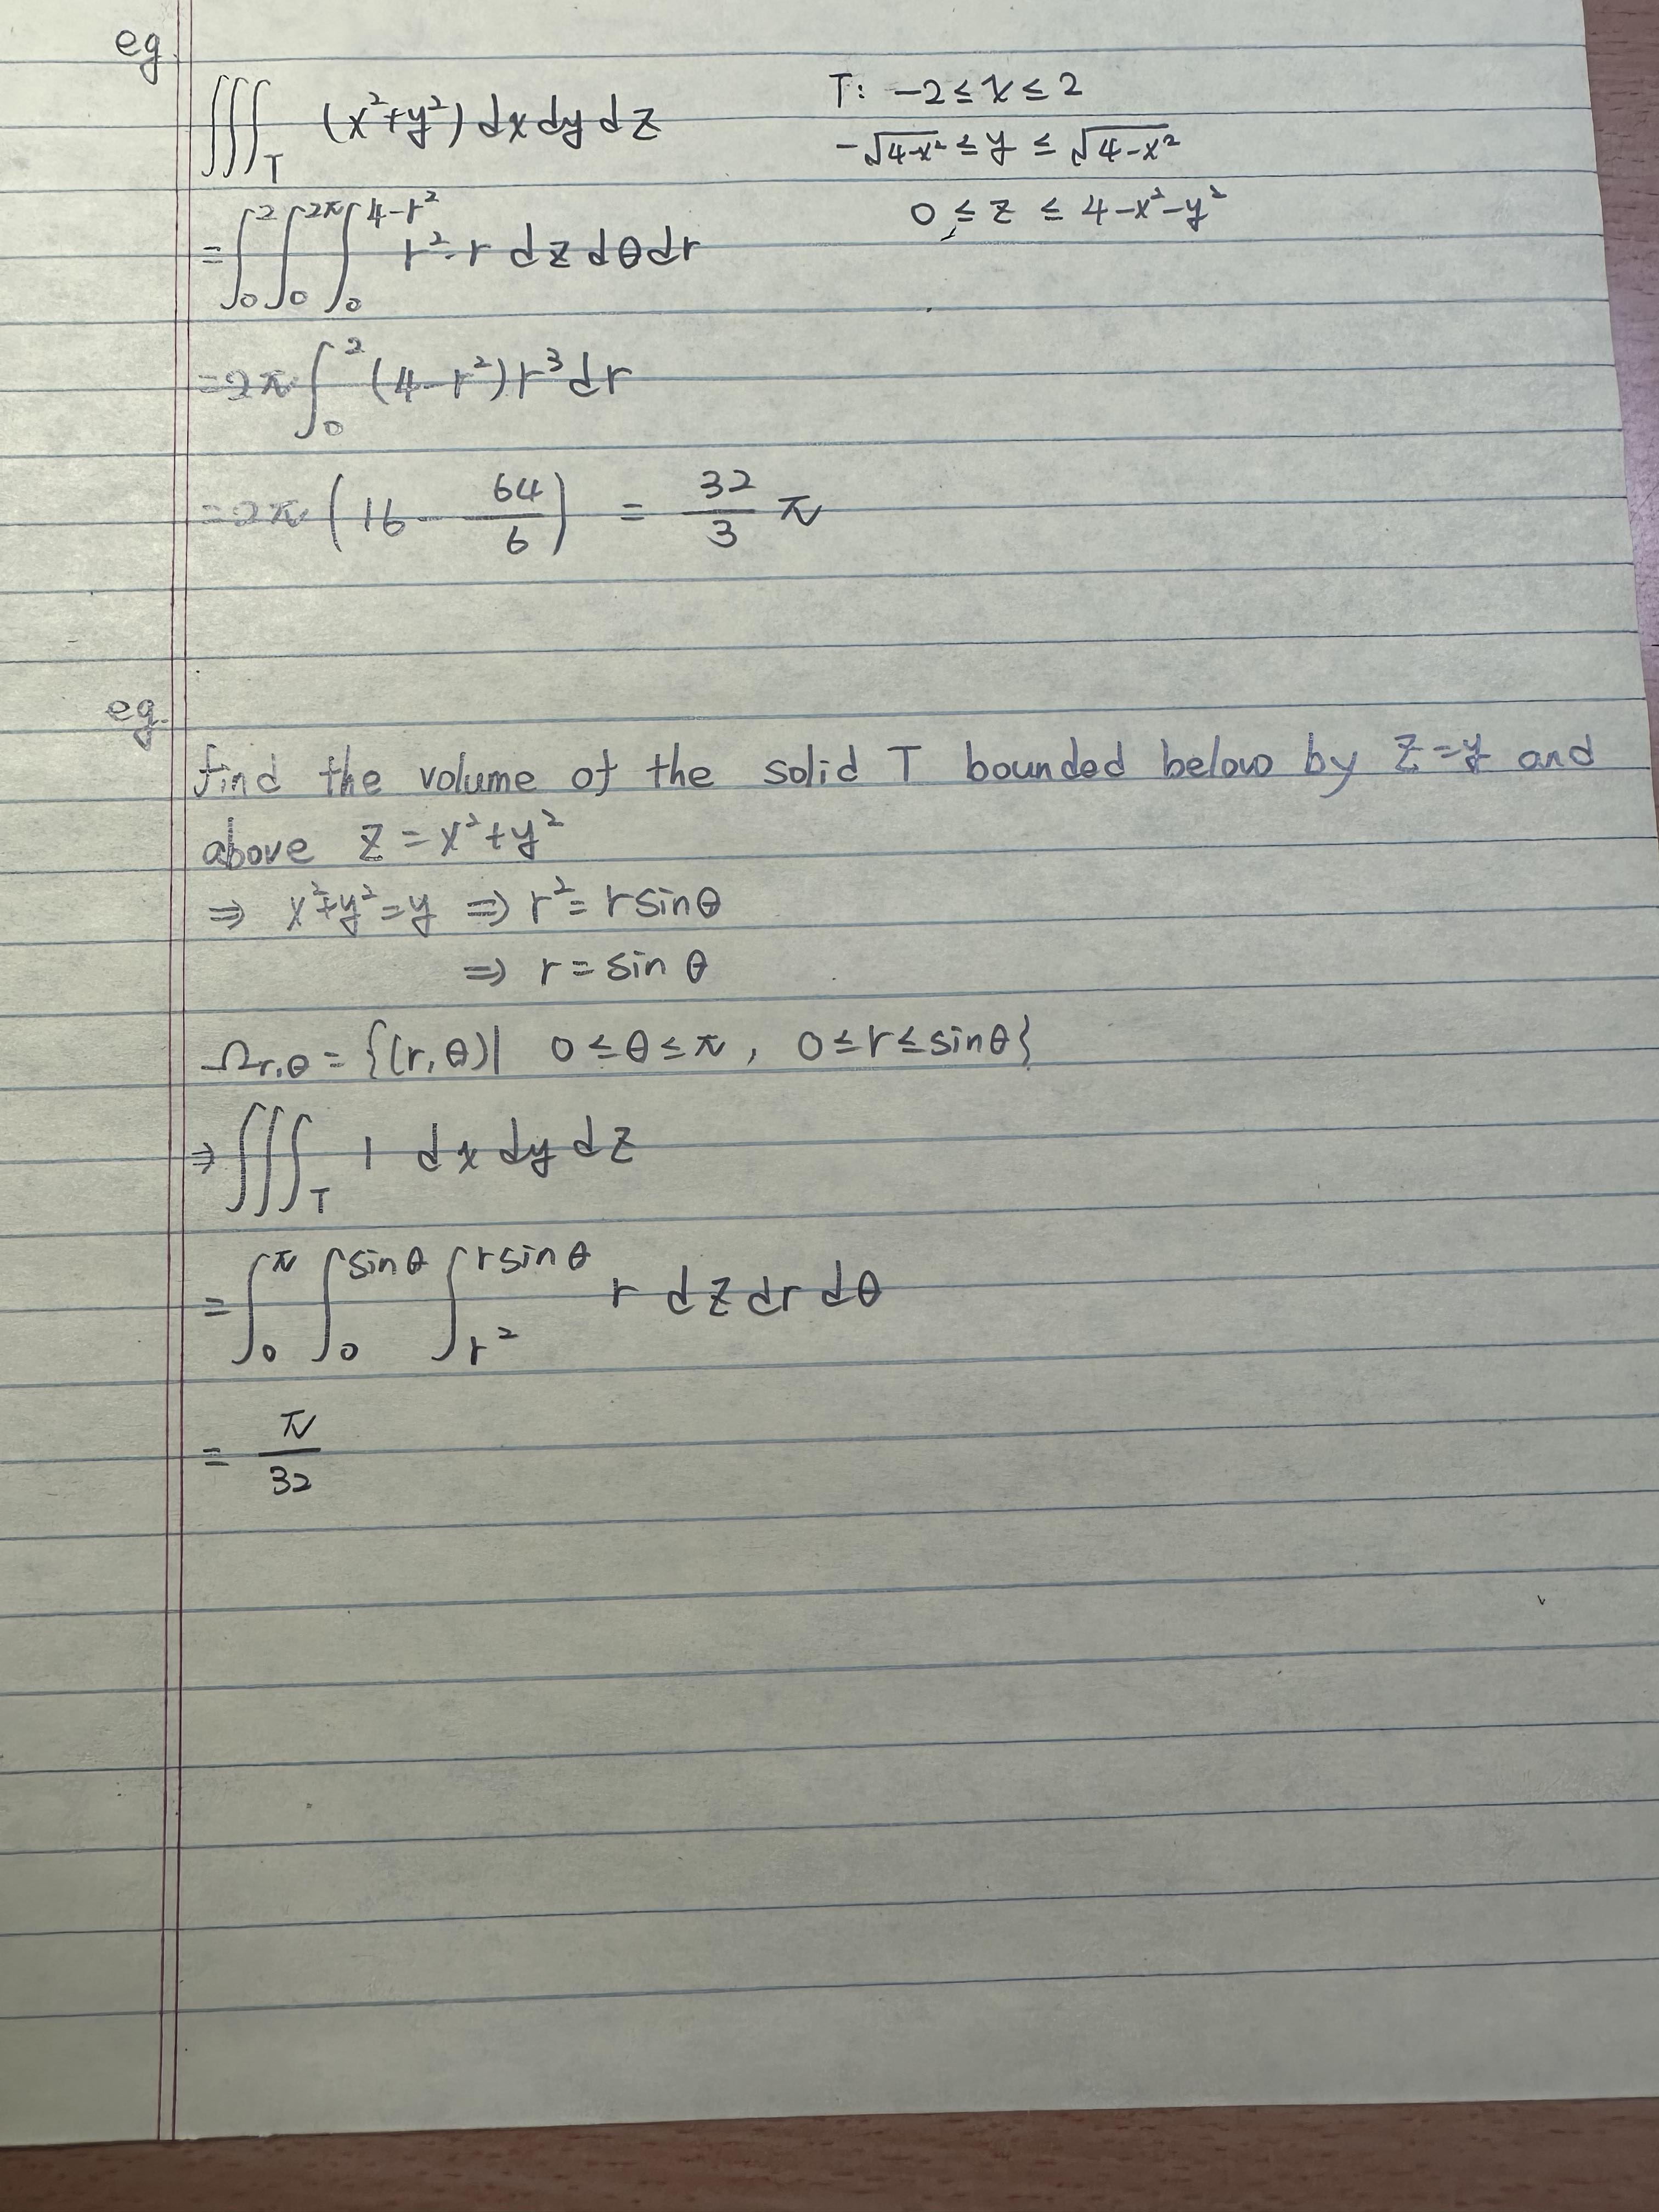 eg.
∭_T (x²+y²) dx dy dz
T: -2 ≤ x ≤ 2
-√(4-x²) ≤ y ≤ √(4-x²)
0 ≤ z ≤ 4-x²-y²
= ∫₀² ∫₀^(2π) ∫₀^(4-r²) r²·r dz dθ dr
= 2π ∫₀² (4-r²) r³ dr
= 2π (16 - 64/6) = 32/3 π
eg.
find the volume of the solid T bounded below by z=y and
above z = x²+y²
⇒ x²+y²=y ⇒ r² = r sin θ
⇒ r = sin θ
Ω_r,θ = {(r,θ)| 0 ≤ θ ≤ π, 0 ≤ r ≤ sin θ}
⇒ ∭_T 1 dx dy dz
= ∫₀^π ∫₀^(sin θ) ∫_(r²)^(r sin θ) r dz dr dθ
= π/32